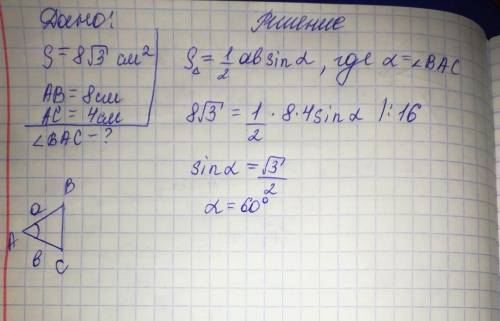 Дано:
S = 8√3 см²
AB = 8см
AC = 4см
∠BAC - ?
Решение
S△ = 1/2 ab sinα, где α = ∠BAC
8√3 = 1/2 · 8 · 4 sinα |: 16
sinα = √3/2
α = 60°
B
a
A
в
C